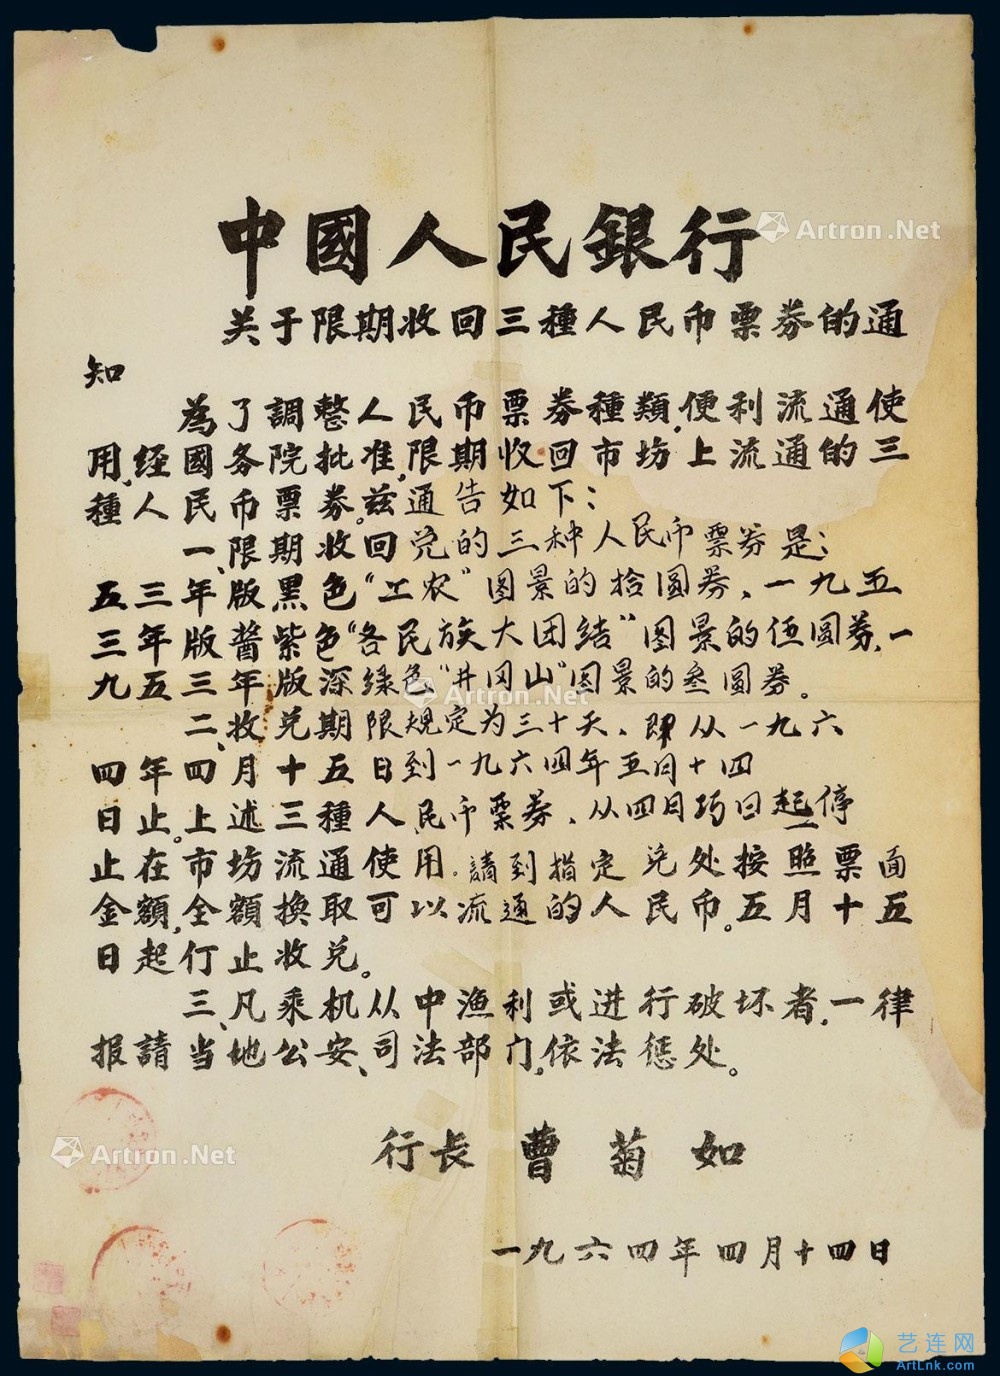 中國人民銀行
关于限期收回三種人民币票券的通
知
為了調整人民币票券種類,便利流通使
用,经國务院批准,限期收回市坊上流通的三
種人民币票券。兹通告如下:
一、限期收回兑的三种人民币票券是:
五三年版黑色"工农"图景的拾圆券、一九五
三年版酱紫色"各民族大团结"图景的伍圆券、一
九五三年版深绿色"井冈山"图景的叁圆券。
二、收兑期限规定为三十天、即从一九六
四年四月十五日到一九六四年五月十四
日止。上述三種人民币票券、从四月 日起停
止在市坊流通使用。請到指定兑处按照票面
金額,全額換取可以流通的人民币。五月十五
日起仃止收兑。
三、凡乘机从中渔利或进行破坏者,一律
报請当地公安、司法部门,依法惩处。
行长 曹菊如
一九六四年四月十四日
Artron.Net
Artron.Net
Artron.Net
艺连网
ArtLnk.com